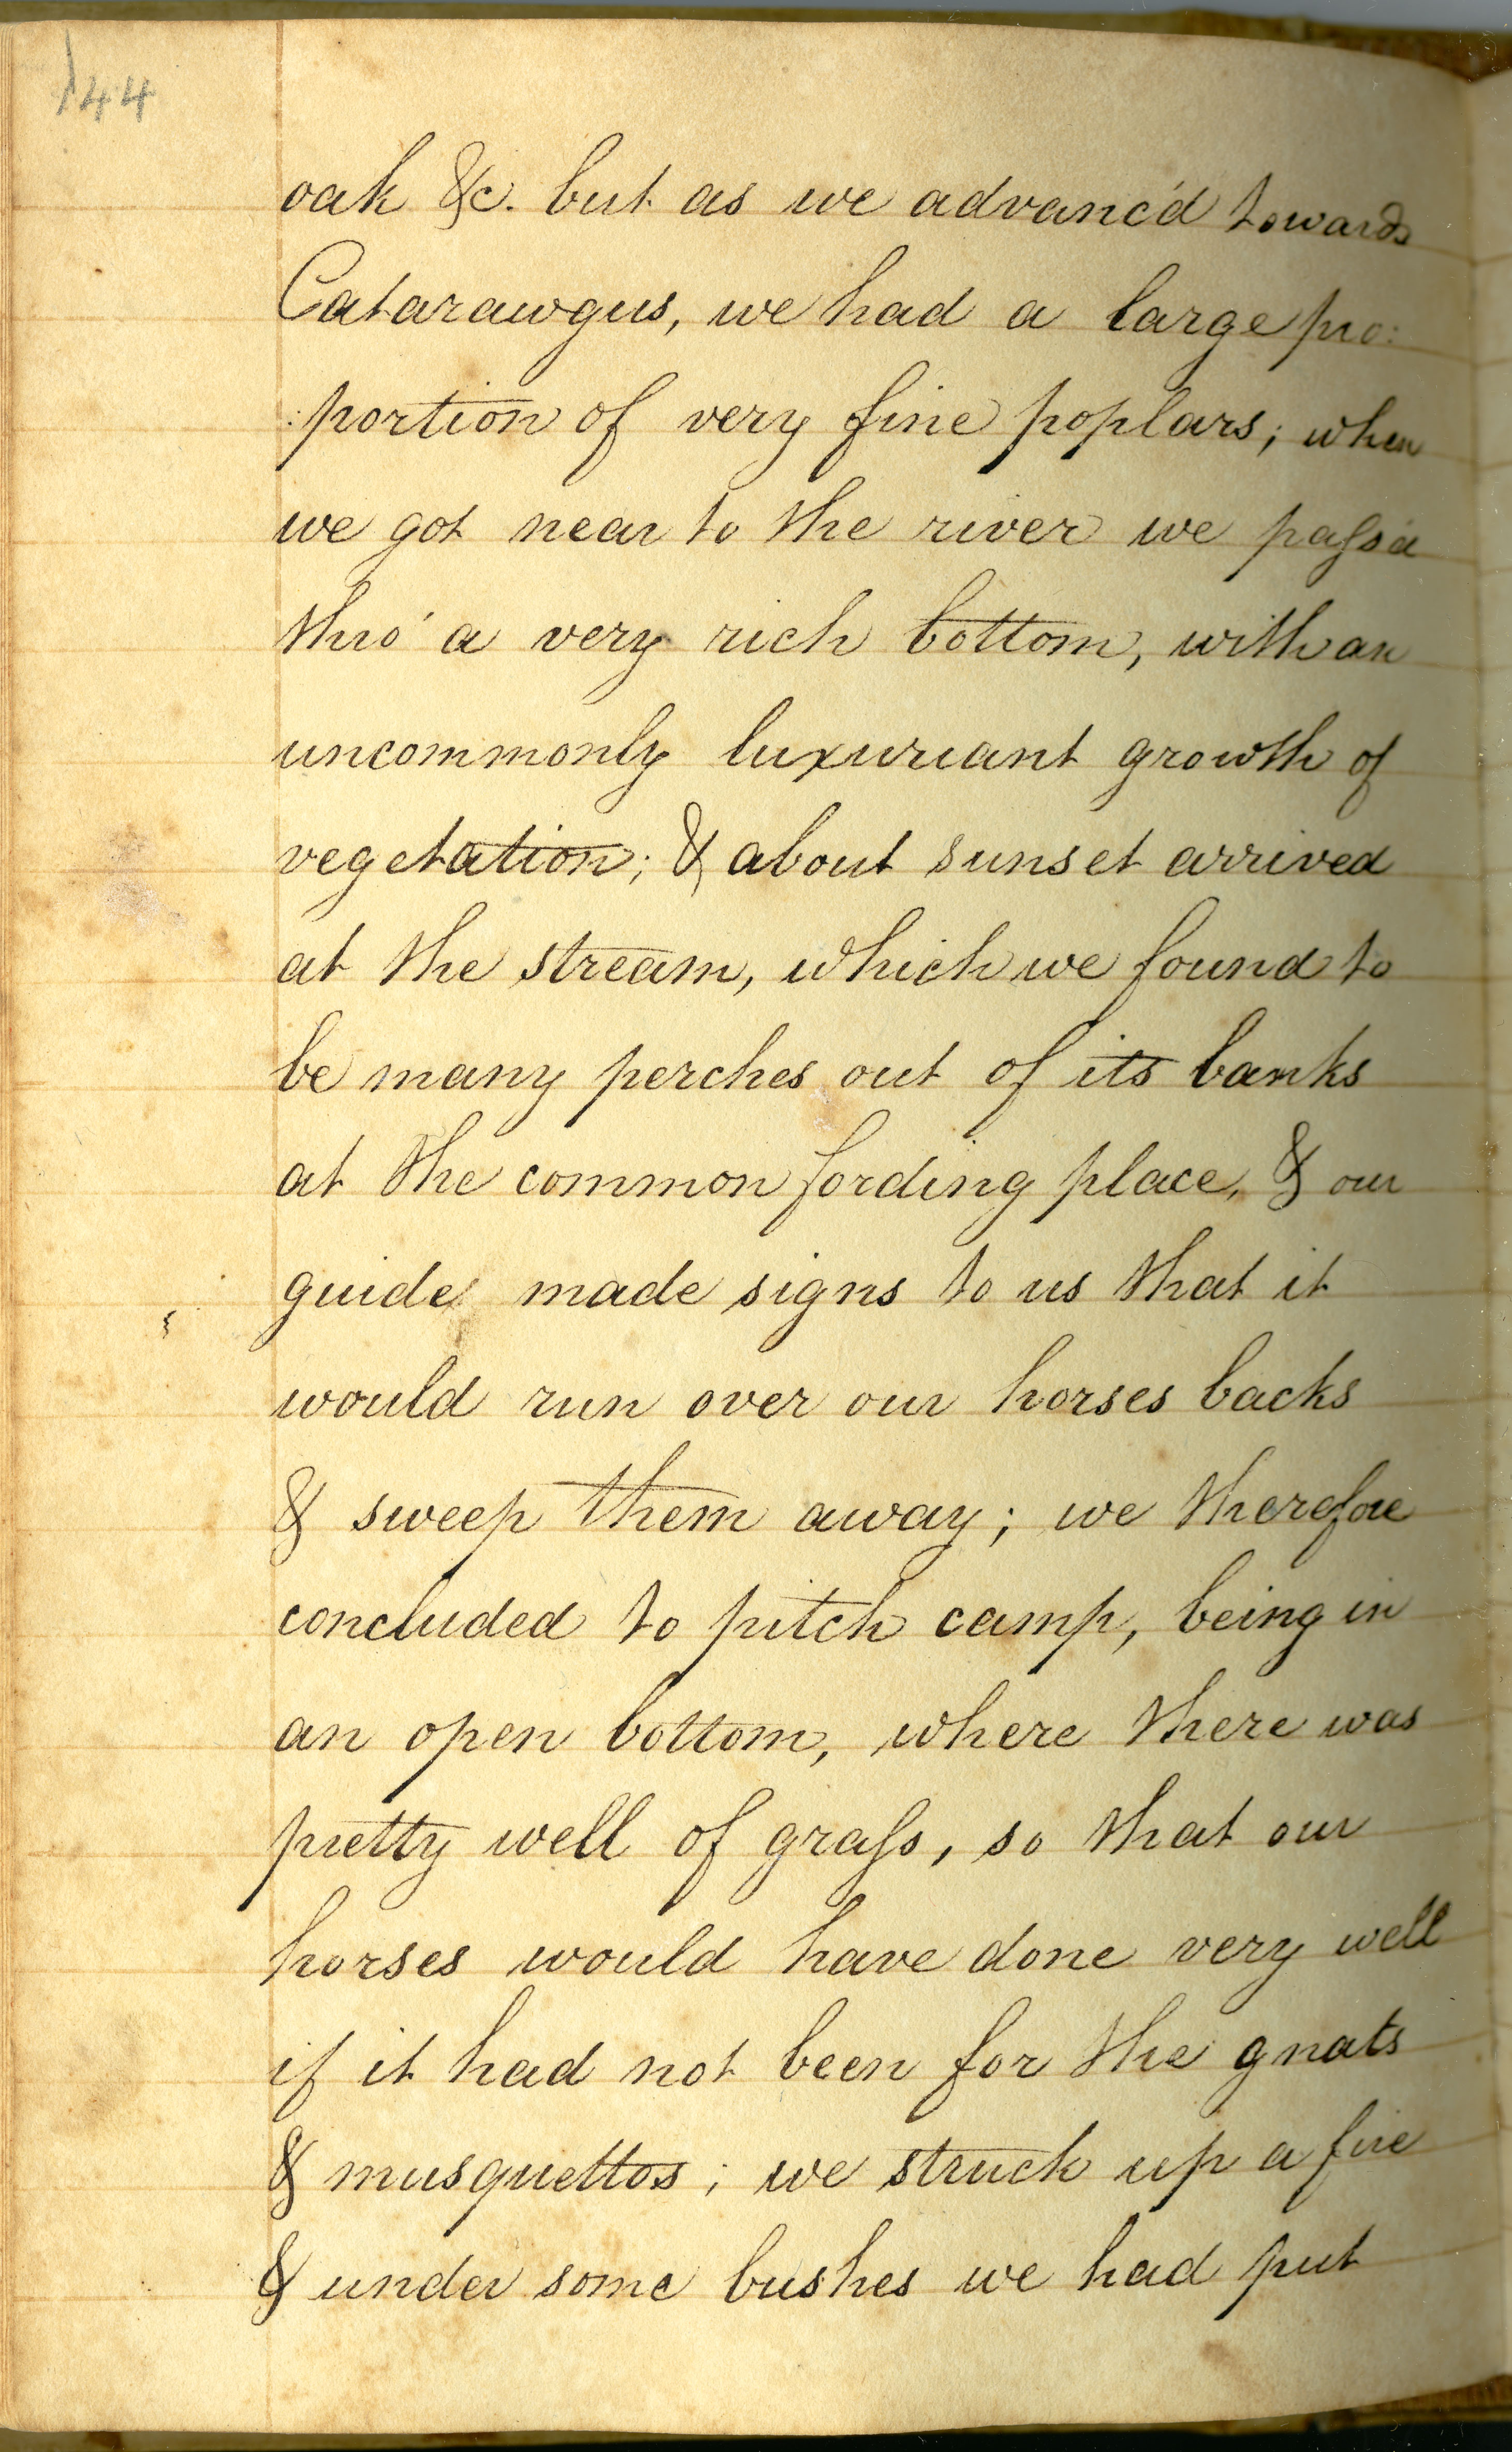 144
oak &c. but as we advanc'd towards
Catarawgus, we had a large pro:
:portion of very fine poplars; when
we got near to the river we pass'd
thro' a very rich bottom, with an
uncommonly luxuriant growth of
vegetation; & about sunset arrived
at the stream, which we found to
be many perches out of its banks
at the common fording place, & our
guide made signs to us that it
would run over our horses backs
& sweep them away; we therefore
concluded to pitch camp, being in
an open bottom, where there was
pretty well of grass, so that our
horses would have done very well
if it had not been for the gnats
& musquettos; we struck up a fire
& under some bushes we had put